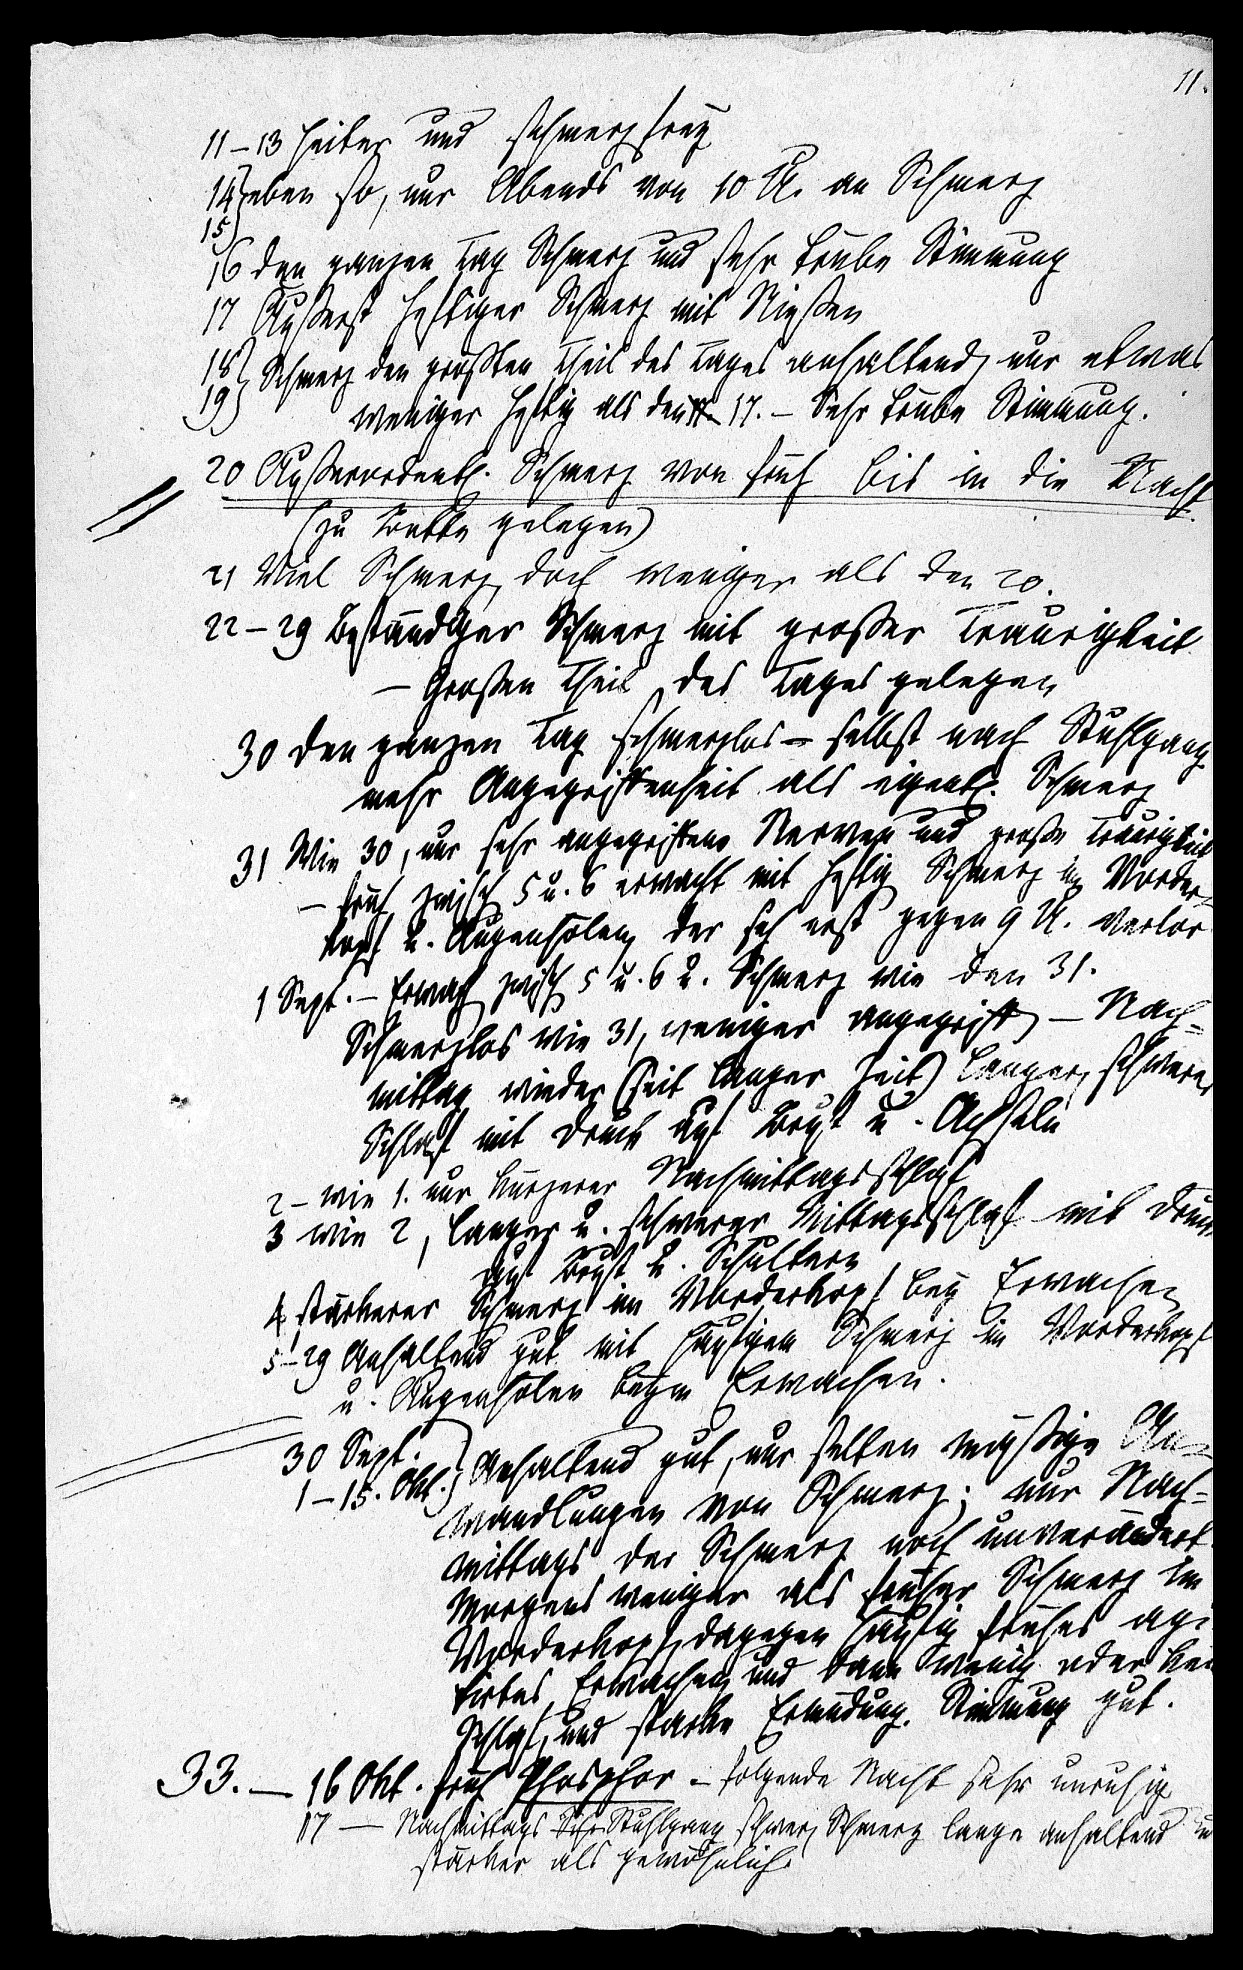 11.
11–13 heiter und schmerzfrey
14 } eben so, nur Abends von 10 U. an Schmerz
15 }
16 den ganzen Tag Schmerz und sehr trübe Stimmung
17 Äußerst heftiger Schmerz mit Nießen
18 } Schmerz den größten Theil des Tages anhaltend, nur etwas
19 } weniger heftig als den 17. – Sehr trübe Stimmung.
20 Außerordentl. Schmerz von früh bis in die Nacht
(zu Bette gelegen)
21 Viel Schmerz, doch weniger als den 20.
22–29 Beständiger Schmerz mit großer Traurigkeit
– Großen Theil des Tages gelegen
30 den ganzen Tag schmerzlos – selbst nach Stuhlgang
mehr Angegriffenheit als eigentl. Schmerz
31 Wie 30, nur sehr angegriffene Nerven und große Traurigkeit
– früh zwisch 5 u. 6 erwacht mit heftig Schmerz im Vorder-
kopf u. Augenhölen, der sich erst gegen 9 U. verlor
1 Sept. – Erwacht zwisch 5 u. 6 U. Schmerz wie den 31.
Schmerzlos wie 31, weniger angegriff – Nach=
mittag wieder (seit langer Zeit) langer, schwerer
Schlaf mit Druck auf Brust u. Achseln
2 – wie 1. nur kürzerer Nachmittagsschlaf
3 wie 2, langer u. schwerer Mittagsschlaf mit Druck
auf Brust u. Schultern
4 stärkerer Schmerz im Vorderkopf bey Erwachen
5–29 Anhaltend gut mit häufigem Schmerz im Vorderkopf
u. Augenhölen beym Erwachen.
30 Sept. } Anhaltend gut, nur selten mäßige An-
1–15. Okt. } wandlungen von Schmerz; nur Nach=
mittags der Schmerz noch unverändert
Morgens weniger als früher Schmerz im
Vorderkopf, dagegen häufig frühes agi
tirtes Erwachen und dann wenig oder kei
Schlaf, und starke Ermüdung. Stimmung gut.
33. – 16 Okt. früh Phosphor – folgende Nacht sehr unruhig
17 – Nachmittags Stuhlgang schwer, Schmerz lange anhaltend
stärker als gewöhnlich.